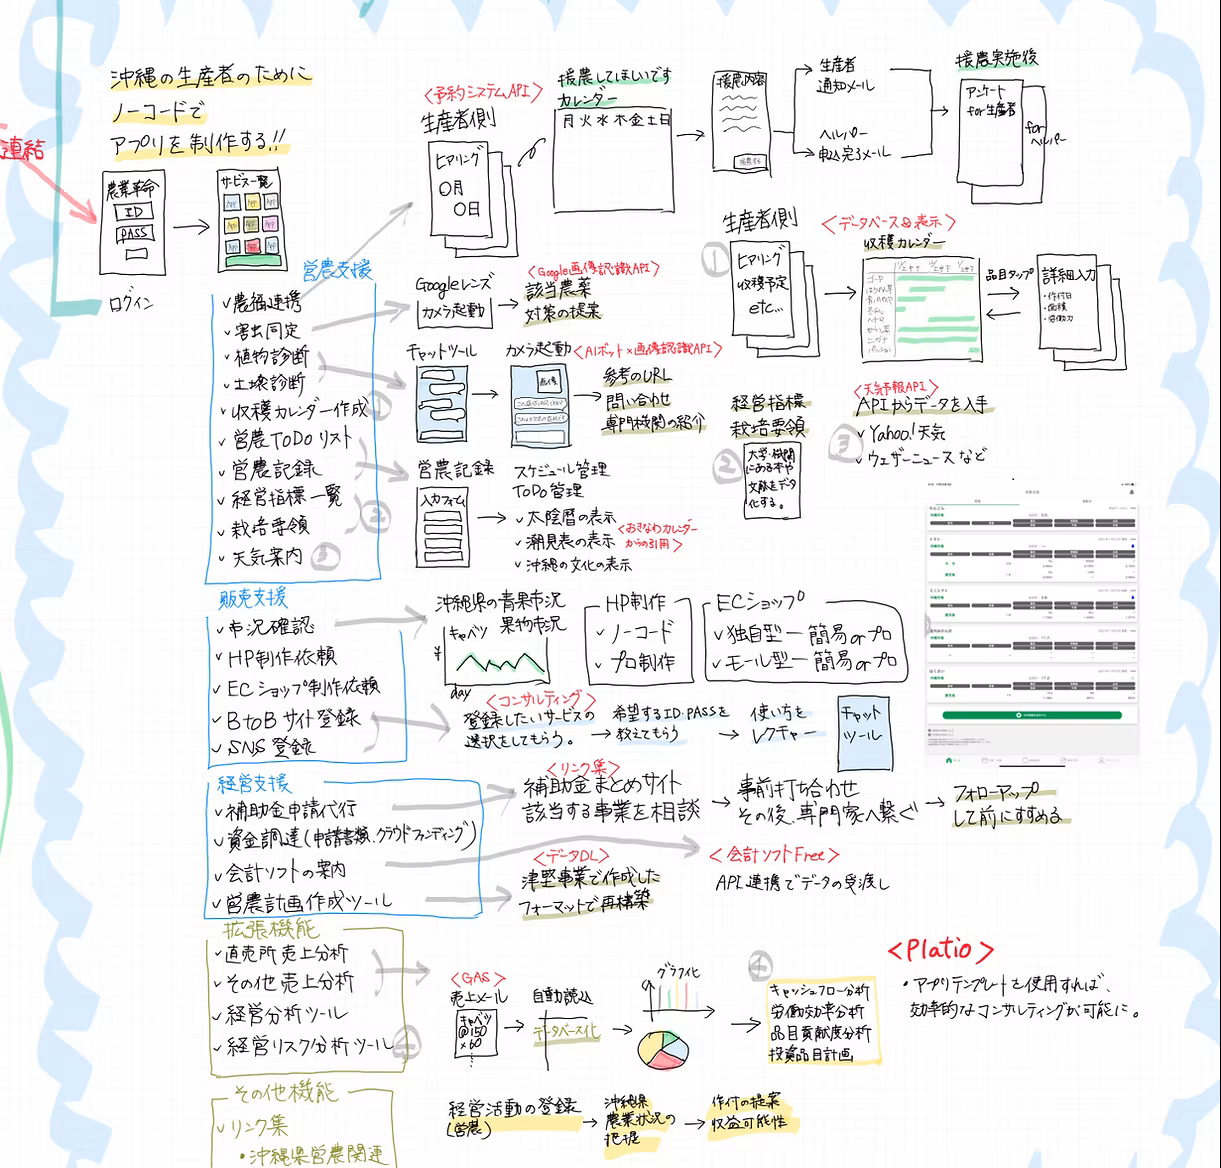 沖縄の生産者のために
ノーコードで
アプリを制作する!!
連結
農業革命
ID
PASS
ログイン
サービス一覧
営農支援
農福連携
害虫同定
植物診断
土壌診断
収穫カレンダー作成
営農ToDoリスト
営農記録
経営指標一覧
栽培要領
天気案内
③
<予約システムAPI>
生産者側
ヒアリング
〇月
〇日
援農してほしいです
カレンダー
月火水木金土日
援農内容
生産者
通知メール
ヘルパー
申込完了メール
援農実施後
アンケート
for生産者
for
ヘルパー
Googleレンズ
カメラ起動
<Google画像認識API>
該当農薬
対策の提案
①
生産者側
ヒアリング
収穫予定
etc...
<データベース&表示>
収穫カレンダー
品目タップ
詳細入力
・作付日
・面積
・労働力
チャットツール
カメラ起動
<AIボット×画像認識API>
画像
参考のURL
問い合わせ
専門機関の紹介
②
経営指標
栽培要領
大学・機関
にある本や
文献をデータ
化する。
③
<天気予報API>
APIからデータを入手
Yahoo!天気
ウェザーニュースなど
営農記録
入力フォーム
スケジュール管理
ToDo管理
太陰暦の表示
潮見表の表示
沖縄の文化の表示
<おきなわカレンダー
からの引用>
販売支援
市況確認
HP制作依頼
ECショップ制作依頼
BtoBサイト登録
SNS登録
沖縄県の青果市況
果物市況
キャベツ
¥
day
HP制作
ノーコード
プロ制作
ECショップ
独自型ー簡易orプロ
モール型ー簡易orプロ
<コンサルティング>
登録したいサービスの
選択をしてもらう。
希望するID.PASSを
教えてもらう
使い方を
レクチャー
チャット
ツール
経営支援
補助金申請代行
資金調達(申請書類、クラウドファンディング)
会計ソフトの案内
営農計画作成ツール
<リンク集>
補助金まとめサイト
該当する事業を相談
事前打ち合わせ
その後、専門家へ繋ぐ
フォローアップ
して前にすすめる
<データDL>
津堅事業で作成した
フォーマットで再構築
<会計ソフトFree>
API連携でデータの受渡し
拡張機能
直売所売上分析
その他売上分析
経営分析ツール
経営リスク分析ツール
④
<GAS>
売上メール
キャベツ
@150
×60
自動読込
データベース化
グラフ化
④
キャッシュフロー分析
労働効率分析
品目貢献度分析
投資品目計画
<Platio>
・アプリテンプレートを使用すれば、
効率的なコンサルティングが可能に。
その他機能
リンク集
・沖縄県営農関連
経営活動の登録
(営農)
沖縄県
農業状況の
把握
作付の提案
収益可能性